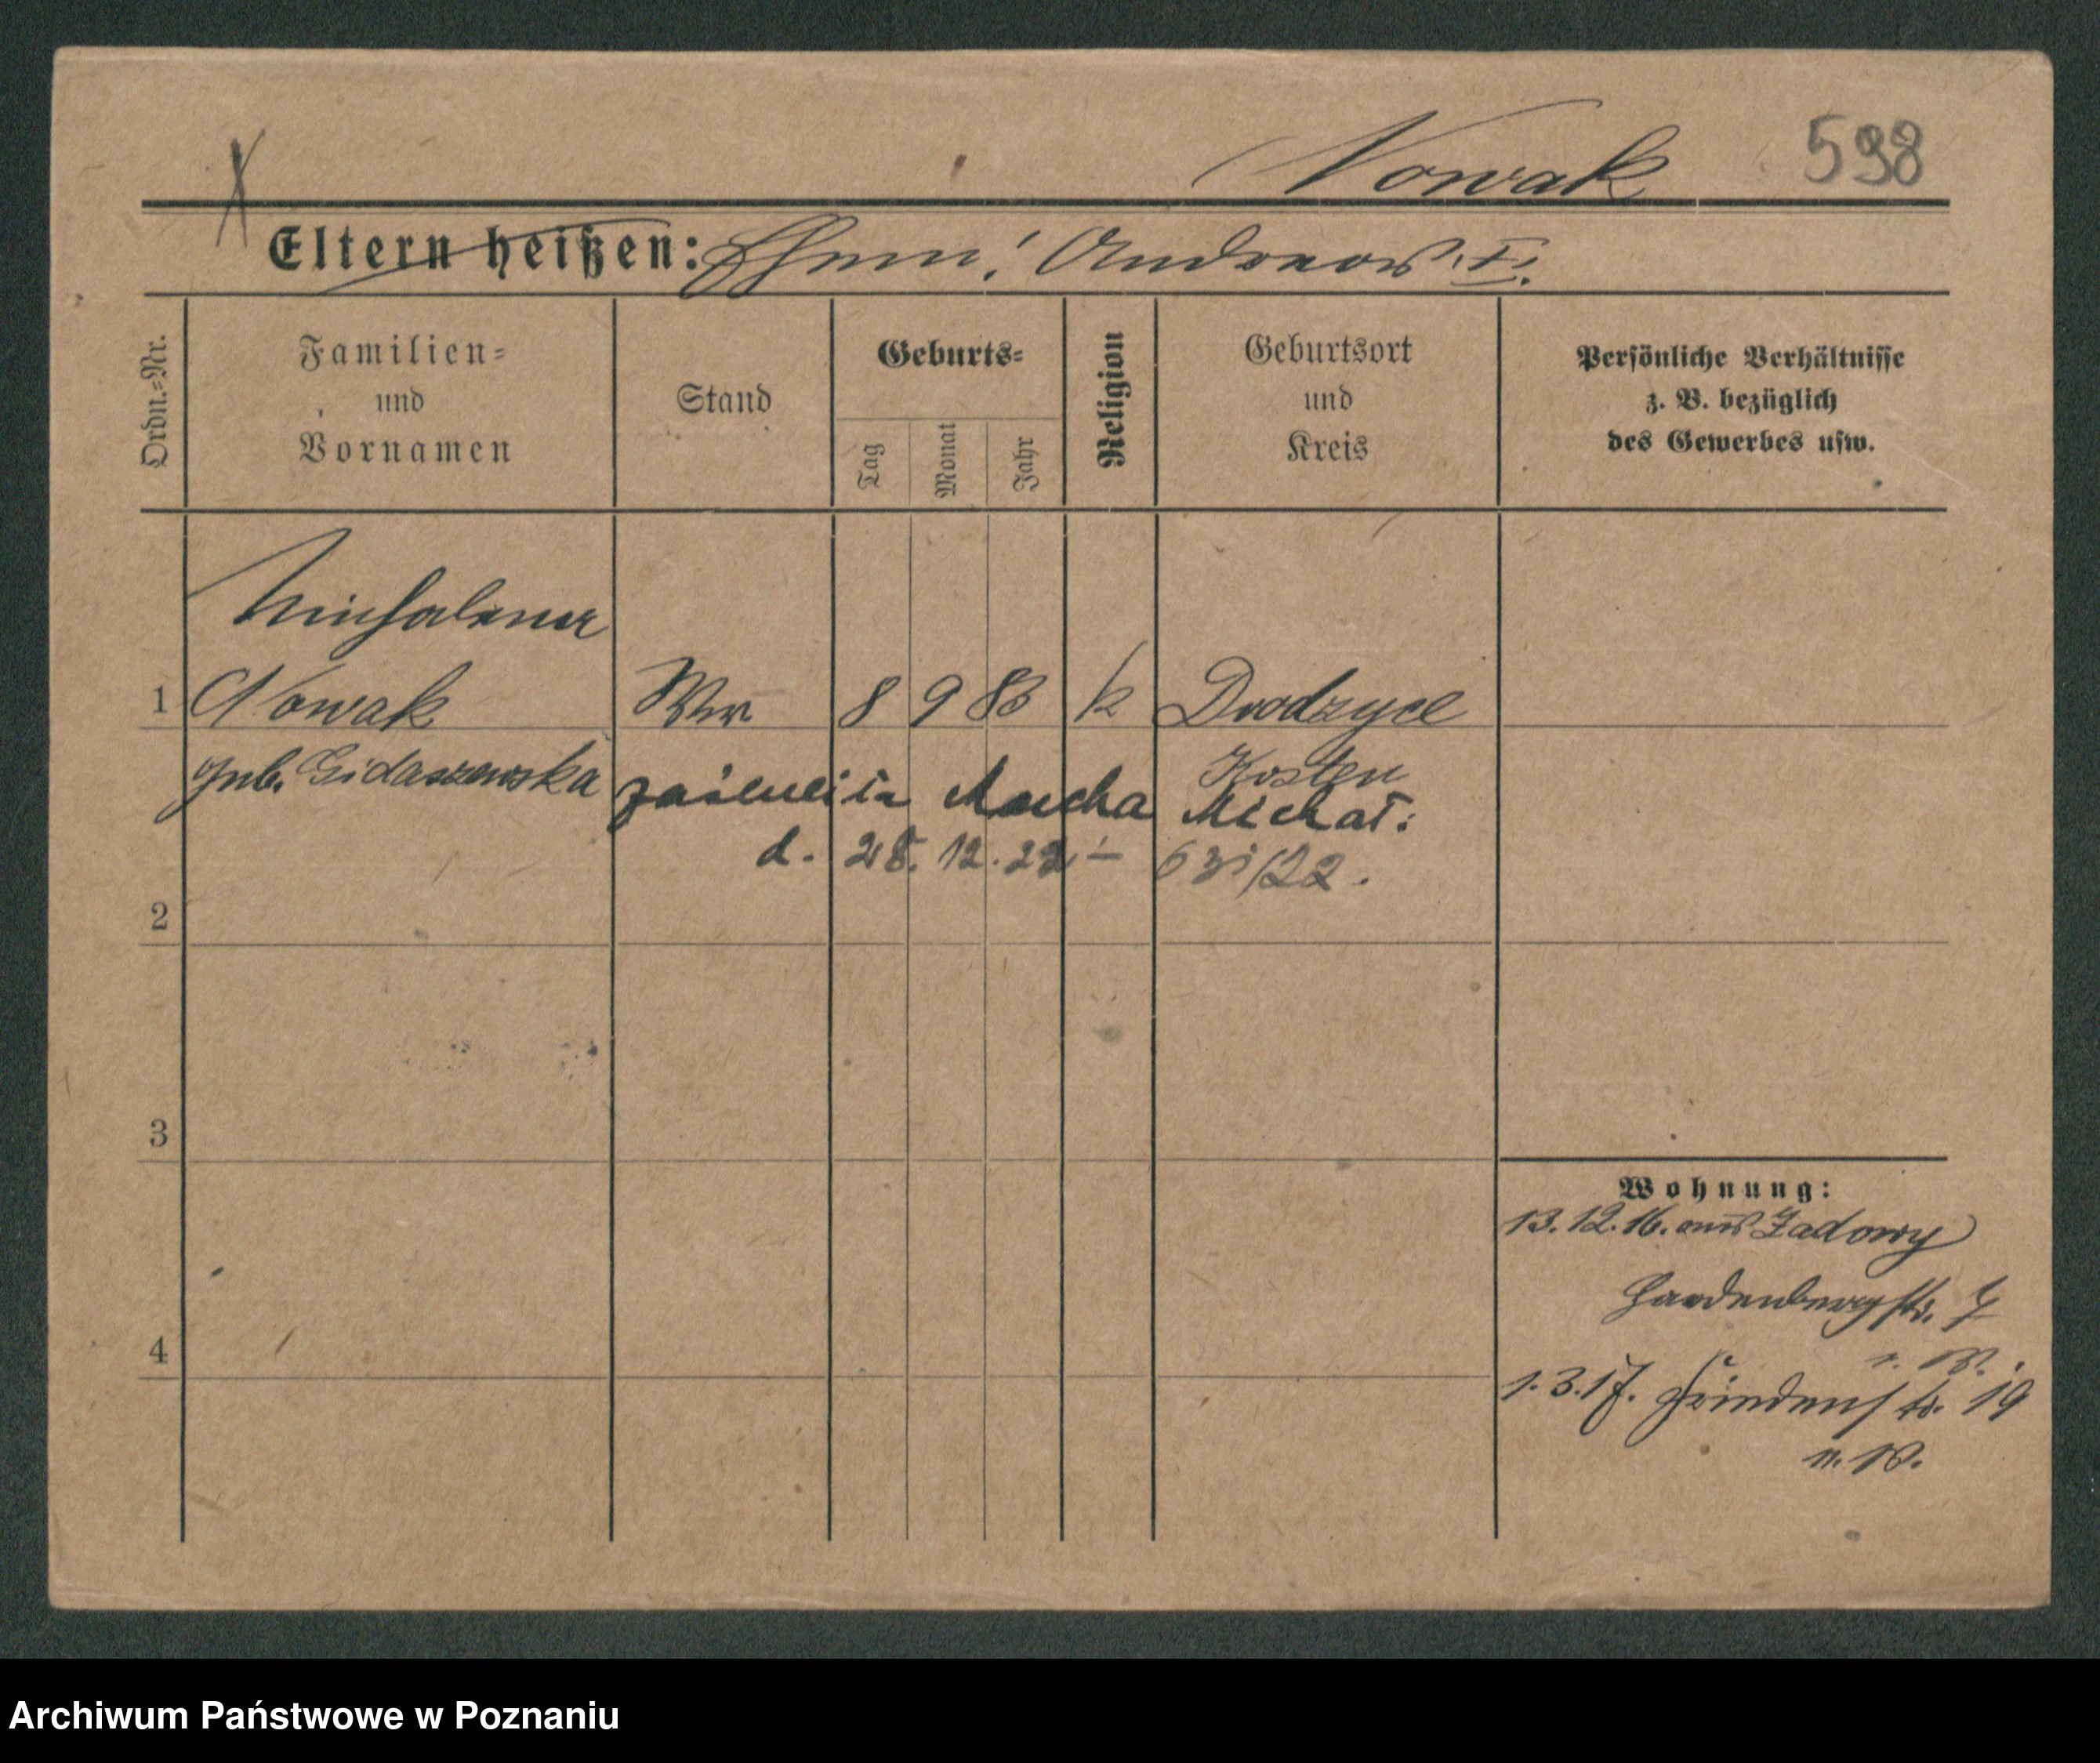 Nowak 598
Eltern heißen: Ehem: Andreas I.
Ordn.-Nr.
Familien- und Vornamen
Stand
Geburts-
Tag
Monat
Jahr
Religion
Geburtsort und Kreis
Persönliche Verhältnisse z. B. bezüglich des Gewerbes usw.
Michalina
1 Nowak Ww 8 9 83 k Drodzyce
geb. Gidaszewska Kosten
Michał:
d. 28. 12. 22
2
3
4
Wohnung:
13. 12. 16. aus Zadory
Hardenbergstr. 7
1. 3. 17. Friedenstr. 19
Archiwum Państwowe w Poznaniu